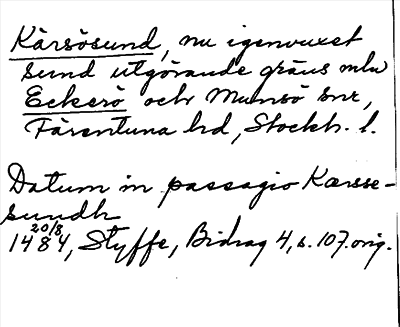 Kårsösund, nu igenvuxet
sund utgörande gräns mln
Eckerö och Munsö snr,
Färentuna hd, Stockh. l.
Datum in passagio Karsse-
sundh
20/8
1484, Styffe, Bidrag 4, s. 107. orig.